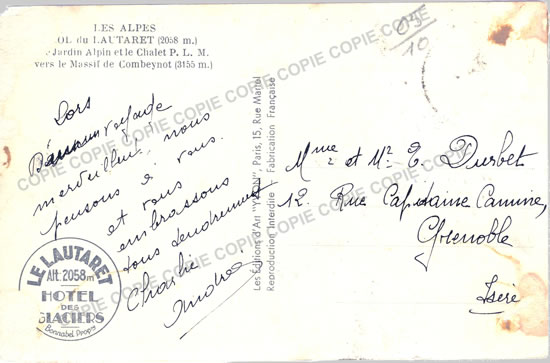 LES ALPES
OL du LAUTARET (2058 m.)
Jardin Alpin et le Chalet P. L. M.
vers le Massif de Combeynot (3155 m.)
Lors
voyage
merveilleux, nous
pensons à vous.
et vous
embrassons
tous tendrement
Charlie
Andrée
LE LAUTARET
Alt. 2058 m
HOTEL
DES
GLACIERS
Bonnabel Propre
Les Éditions d'Art "YVON", Paris, 15, Rue Martel
Reproduction Interdite - Fabrication Française
Mme et Mr E. Durbet
12. Rue Capitaine Camine,
Grenoble
Isère
05
10
COPIE COPIE COPIE COPIE COPIE COPIE